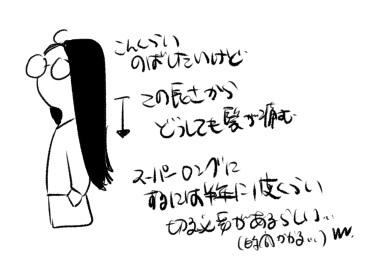 こんくらい
のばしたいけど
この長さから
どうしても髪が痛む
スーパーロングに
するには半年に1度くらい
切る必要があるらしい…
(時間かかる…)